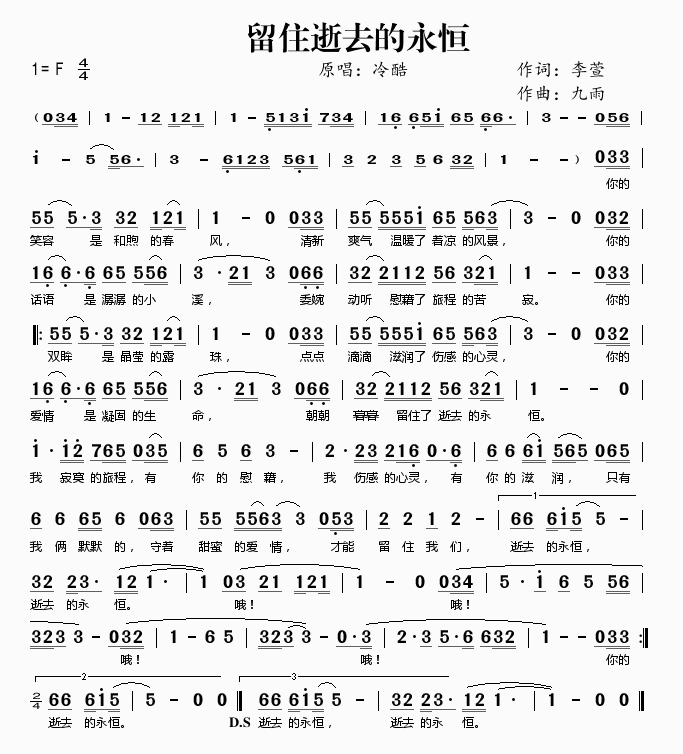 留住逝去的永恒
1= F 4/4 原唱：冷酷 作词：李萱
作曲：九雨
( 034 | 1 - 12 121 | 1 - 513i 734 | 16 65i 65 66· | 3 - - 056 |
i - 5 56· | 3 - 6123 561 | 3 2 3 5 6 32 | 1 - - ) 033 |
你的
55 5·3 32 121 | 1 - 0 033 | 55 555i 65 563 | 3 - 0 032 |
笑容 是 和煦 的春 风， 清新 爽气 温暖了 着凉 的风景， 你的
16 6·6 65 556 | 3 · 21 3 066 | 32 2112 56 321 | 1 - - 033 |
话语 是 潺潺 的小 溪， 委婉 动听 慰藉了 旅程 的苦 寂。 你的
‖: 55 5·3 32 121 | 1 - 0 033 | 55 555i 65 563 | 3 - 0 032 |
双眸 是 晶莹 的露 珠， 点点 滴滴 滋润了 伤感 的心灵， 你的
16 6·6 65 556 | 3 · 21 3 066 | 32 2112 56 321 | 1 - - 0 |
爱情 是 凝固 的生 命， 朝朝 暮暮 留住了 逝去 的永 恒。
i · i2 765 035 | 6 5 6 3 - | 2·23 216 0·6 | 6 6 6i 565 065 |
我 寂寞 的旅程，有 你 的 慰 藉， 我 伤感 的心灵， 有 你 的 滋 润， 只有
6 6 65 6 063 | 55 5563 3 053 | 2 2 1 2 - | 1 66 6i5 5 - |
我 俩 默默 的，守着 甜蜜 的爱 情， 才能 留 住 我 们， 逝去 的永恒，
32 23· 12 1· | 1 03 21 121 | 1 - 0 034 | 5 · i 6 5 56 |
逝去 的永 恒。 哦！ 哦！
323 3 - 032 | 1 - 6 5 | 323 3 - 0·3 | 2·3 5·6 632 | 1 - - 033 :‖
哦！ 哦！ 你的
2 3
2/4 66 6i5 | 5 - 0 0 ‖ 66 6i5 5 - | 32 23· 12 1· | 1 - 0 0 ‖
逝去 的永恒。 D.S 逝去 的永恒， 逝去 的永 恒。